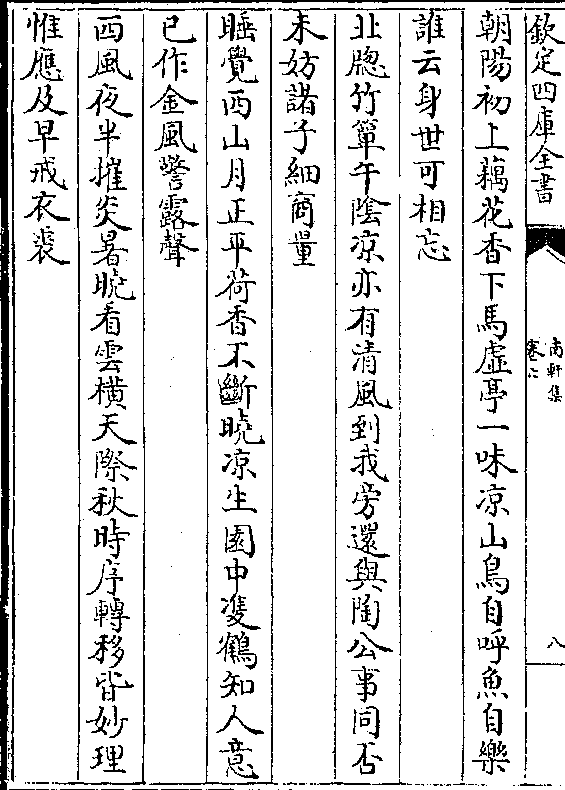 欽定四庫全書
南軒集
卷六
八
朝陽初上藕花香下馬虛亭一味凉山鳥自呼魚自樂
誰云身世可相忘
北牕竹簟午陰凉亦有清風到我旁還與陶公事同否
未妨諸子細商量
睡覺西山月正平荷香不斷曉凉生園中雙鶴知人意
已作金風警露聲
西風夜半摧炎暑晩看雲橫天際秋時序轉移皆妙理
惟應及早戒衣裘